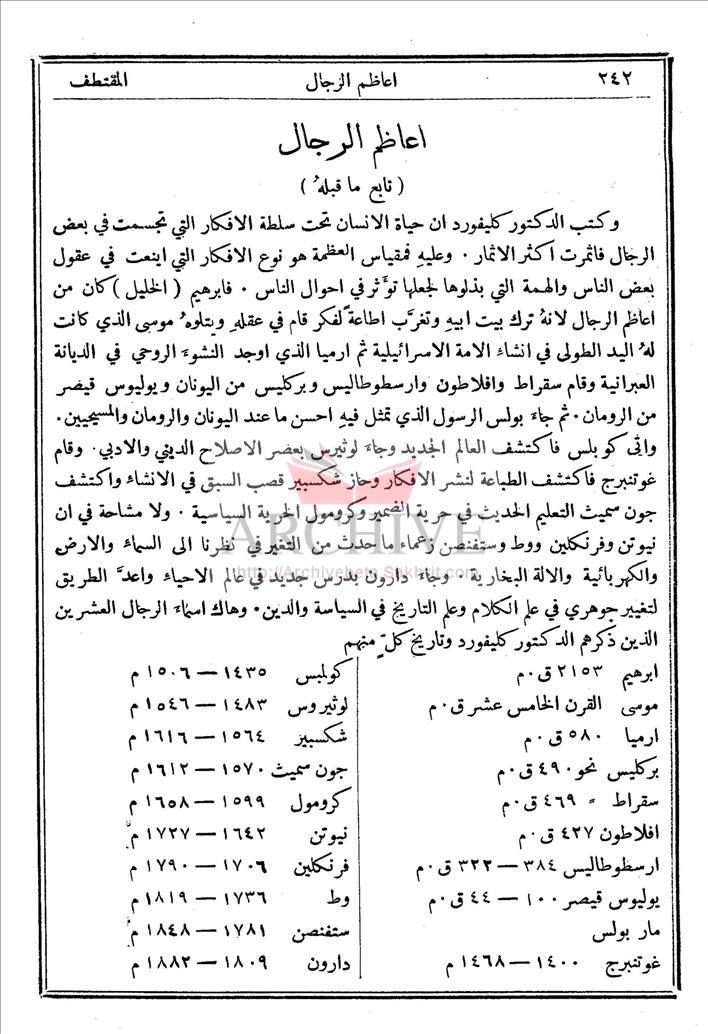 ٢٤٢ اعاظم الرجال المقتطف
اعاظم الرجال
( تابع ما قبلهُ )
وكتب الدكتور كليفورد ان حياة الانسان تحت سلطة الافكار التي تجسمت في بعض
الرجال فاثمرت اكثر الاثمار . وعليهِ فمقياس العظمة هو نوع الافكار التي اينعت في عقول
بعض الناس والهمة التي بذلوها لجعلها تؤَثر في احوال الناس . فابرهيم ( الخليل ) كان من
اعاظم الرجال لانهُ ترك بيت ابيهِ وتغرَّب اطاعةً لفكر قام في عقلهِ ويتلوهُ موسى الذي كانت
لهُ اليد الطولى في انشاءِ الامة الاسرائيلية ثم ارميا الذي اوجد النشوءَ الروحي في الديانة
العبرانية وقام سقراط وافلاطون وارسطوطاليس وبركليس من اليونان ويوليوس قيصر
من الرومان . ثم جاءَ بولس الرسول الذي تمثل فيهِ احسن ما عند اليونان والرومان والمسيحيين .
واتى كولمبس فاكتشف العالم الجديد وجاءَ لوثيرس بعصر الاصلاح الديني والادبي . وقام
غوتنبرج فاكتشف الطباعة لنشر الافكار وحاز شكسبير قصب السبق في الانشاء واكتشف
جون سميث التعليم الحديث في حرية الضمير وكرومول الحرية السياسية . ولا مشاحة في ان
نيوتن وفرنكلين ووط وستفنصن زعماء ما حدث من التغير في نظرنا الى السماءِ والارض
والكهربائية والالة البخارية . وجاءَ دارون بدرس جديد في عالم الاحياء واعدَّ الطريق
لتغيير جوهري في علم الكلام وعلم التاريخ في السياسة والدين . وهاك اسماءَ الرجال العشرين
الذين ذكرهم الدكتور كليفورد وتاريخ كلٍّ منهم
ابرهيم ٢١٥٣ ق.م
موسى القرن الخامس عشر ق.م
ارميا ٥٨٠ ق.م
بركليس نحو ٤٩٠ ق.م
سقراط " ٤٦٩ ق.م
افلاطون ٤٢٧ ق.م
ارسطوطاليس ٣٨٤ — ٣٢٢ ق.م
يوليوس قيصر ١٠٠ — ٤٤ ق.م
مار بولس
غوتنبرج ١٤٠٠ — ١٤٦٨ م
كولمبس ١٤٣٥ — ١٥٠٦ م
لوثيروس ١٤٨٣ — ١٥٤٦ م
شكسبير ١٥٦٤ — ١٦١٦ م
جون سميث ١٥٧٠ — ١٦١٢ م
كرومول ١٥٩٩ — ١٦٥٨ م
نيوتن ١٦٤٢ — ١٧٢٧ م
فرنكلين ١٧٠٦ — ١٧٩٠ م
وط ١٧٣٦ — ١٨١٩ م
ستفنصن ١٧٨١ — ١٨٤٨ م
دارون ١٨٠٩ — ١٨٨٢ م
ARCHIVE
http://Archivebeta.Sakhrit.com